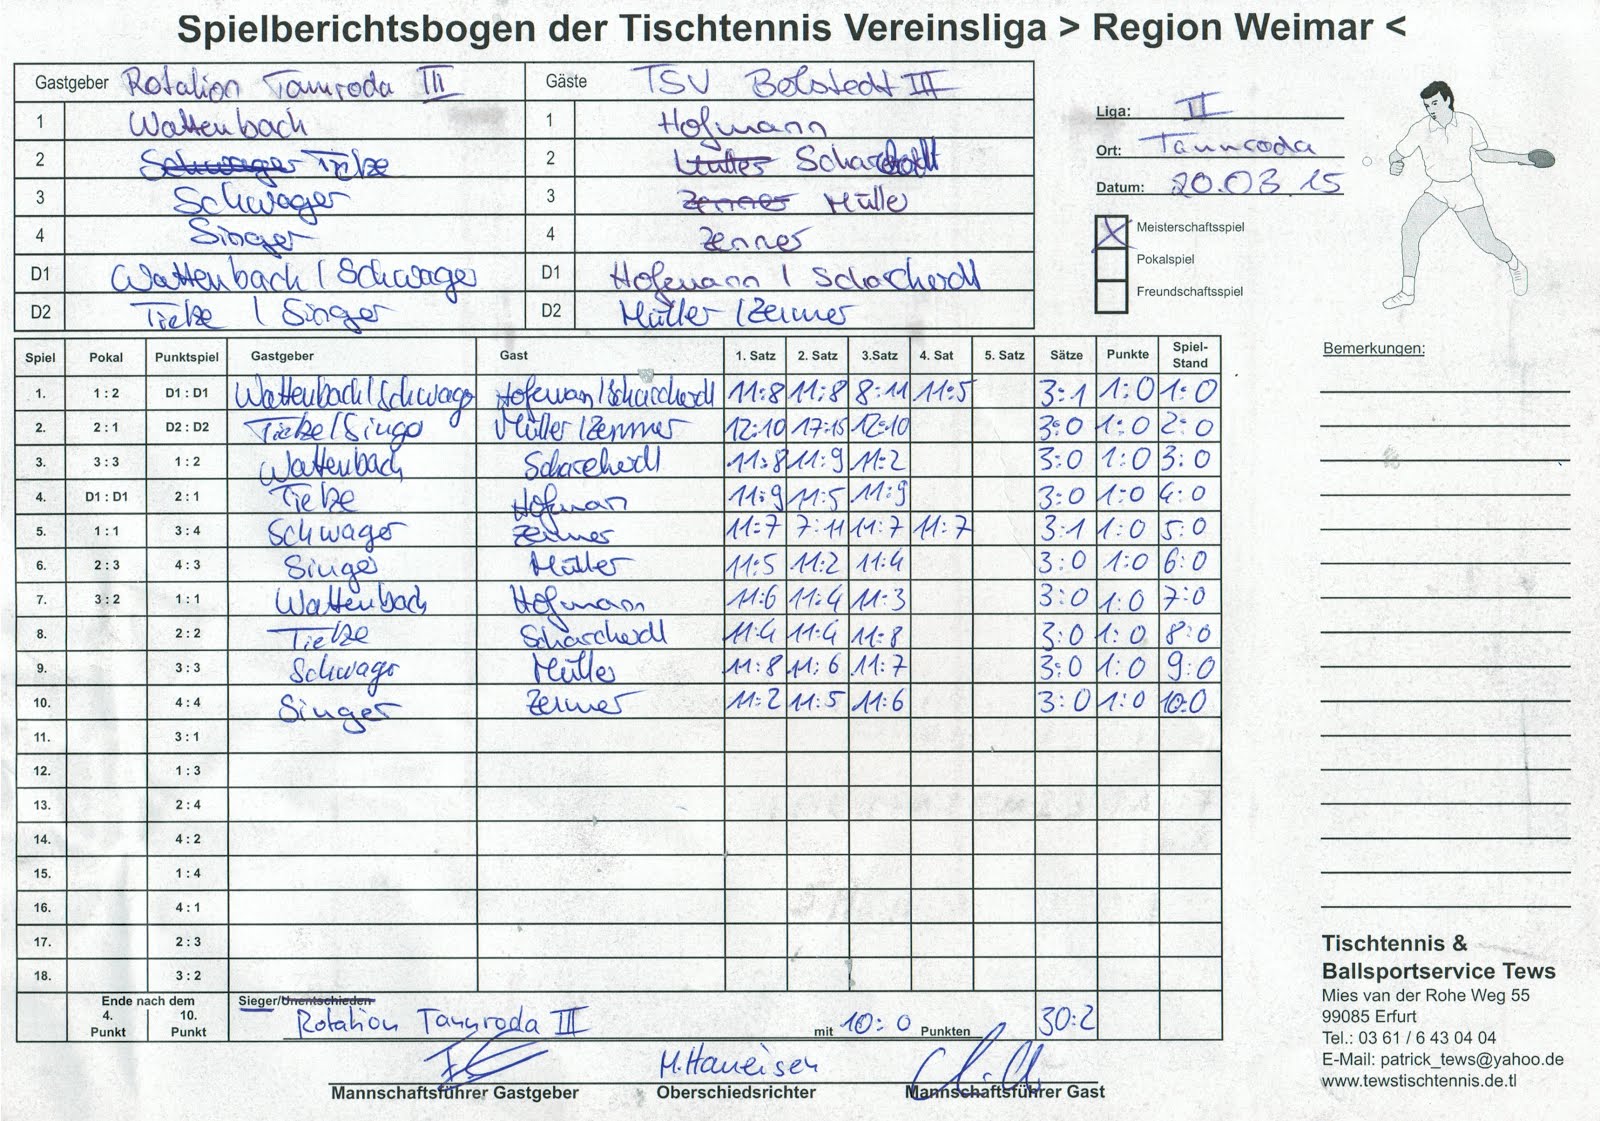 Spielberichtsbogen der Tischtennis Vereinsliga > Region Weimar <
Gastgeber Rotation Tannroda III Gäste TSV Bolstedt III
1 Wattenbach 1 Hofmann
2 Schwager Tietze 2 Müller Scharcherdt
3 Schwager 3 Zenner Müller
4 Singer 4 Zenner
D1 Wattenbach / Schwager D1 Hofmann / Scharcherdt
D2 Tietze / Singer D2 Müller / Zenner
Liga: II
Ort: Tannroda
Datum: 20.03.15
X Meisterschaftsspiel
Pokalspiel
Freundschaftsspiel
Bemerkungen:
Spiel Pokal Punktspiel Gastgeber Gast 1. Satz 2. Satz 3.Satz 4. Sat 5. Satz Sätze Punkte Spiel-Stand
1. 1 : 2 D1 : D1 Wattenbach/Schwager Hofmann/Scharcherdt 11:8 11:8 8:11 11:5 3:1 1:0 1:0
2. 2 : 1 D2 : D2 Tietze/Singer Müller/Zenner 12:10 17:15 12:10 3:0 1:0 2:0
3. 3 : 3 1 : 2 Wattenbach Scharcherdt 11:8 11:9 11:2 3:0 1:0 3:0
4. D1 : D1 2 : 1 Tietze Hofmann 11:9 11:5 11:9 3:0 1:0 4:0
5. 1 : 1 3 : 4 Schwager Zenner 11:7 7:11 11:7 11:7 3:1 1:0 5:0
6. 2 : 3 4 : 3 Singer Müller 11:5 11:2 11:4 3:0 1:0 6:0
7. 3 : 2 1 : 1 Wattenbach Hofmann 11:6 11:4 11:3 3:0 1:0 7:0
8. 2 : 2 Tietze Scharcherdt 11:4 11:4 11:8 3:0 1:0 8:0
9. 3 : 3 Schwager Müller 11:8 11:6 11:7 3:0 1:0 9:0
10. 4 : 4 Singer Zenner 11:2 11:5 11:6 3:0 1:0 10:0
11. 3 : 1
12. 1 : 3
13. 2 : 4
14. 4 : 2
15. 1 : 4
16. 4 : 1
17. 2 : 3
18. 3 : 2
Ende nach dem
4. Punkt 10. Punkt
Sieger/Unentschieden
Rotation Tannroda III mit 10:0 Punkten 30:2
M.Haneisen
Mannschaftsführer Gastgeber Oberschiedsrichter Mannschaftsführer Gast
Tischtennis &
Ballsportservice Tews
Mies van der Rohe Weg 55
99085 Erfurt
Tel.: 03 61 / 6 43 04 04
E-Mail: patrick_tews@yahoo.de
www.tewstischtennis.de.tl